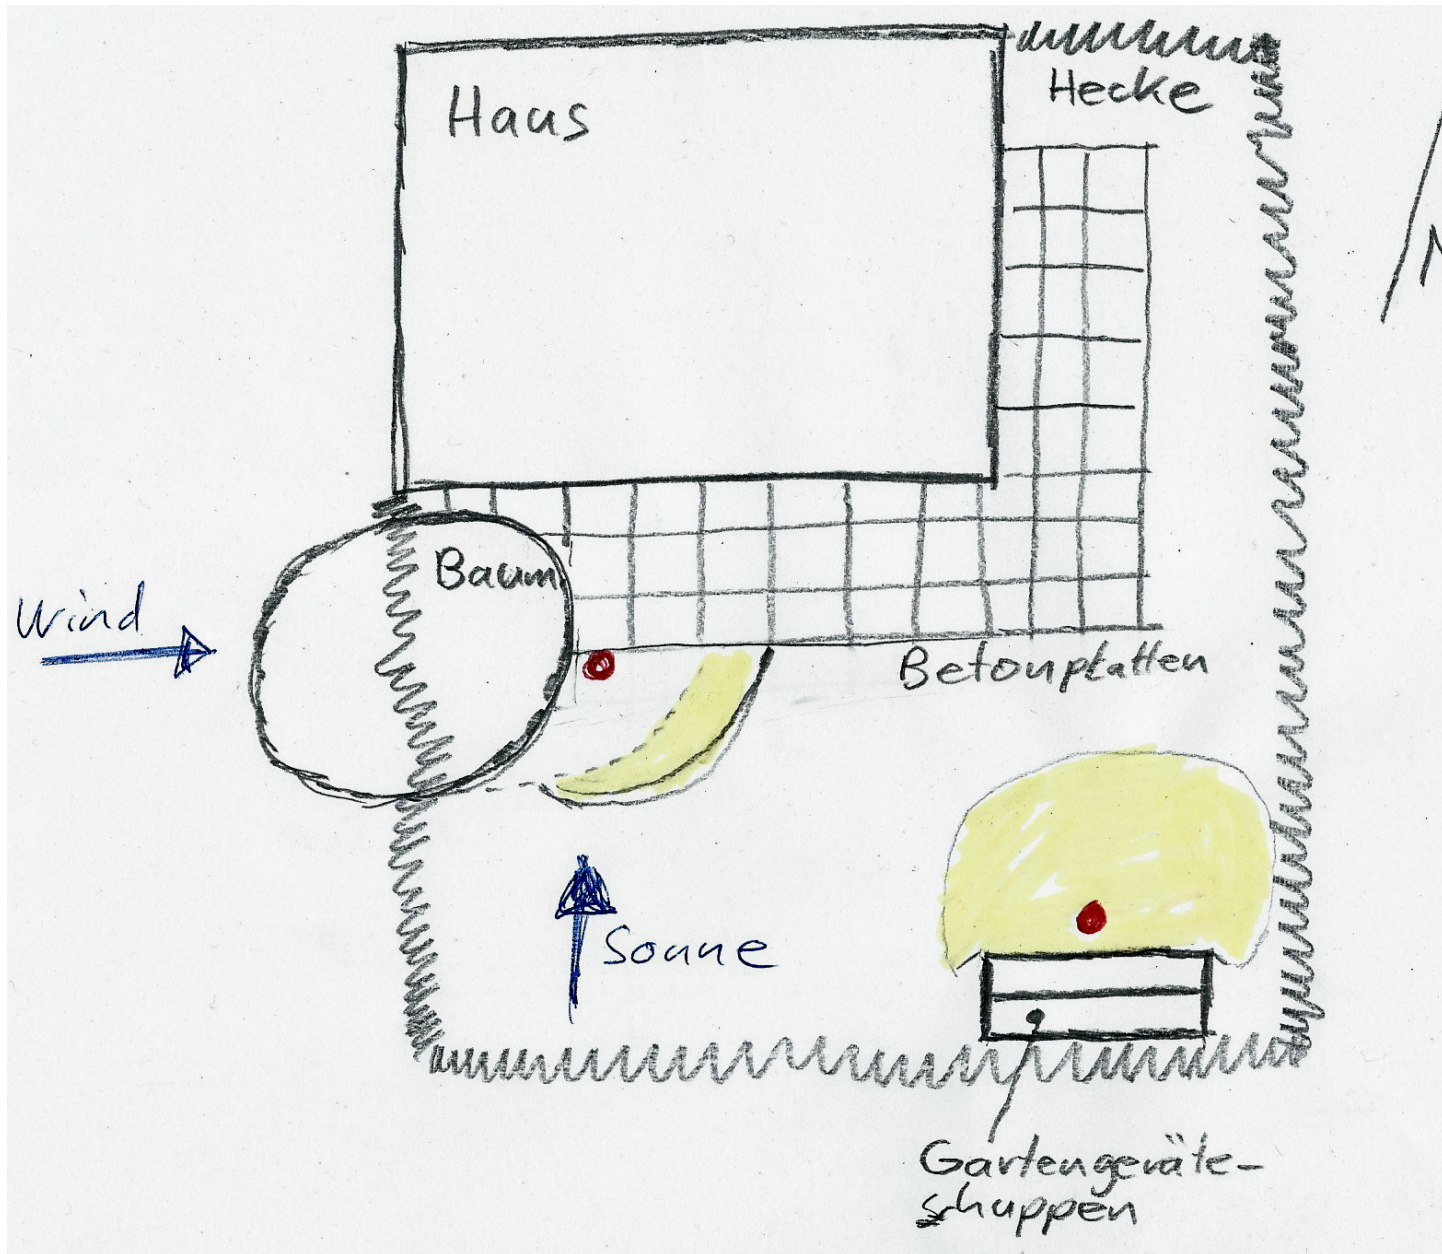 Haus
Hecke
Baum
Wind
Betonplatten
Sonne
Gartengeräte-
schuppen